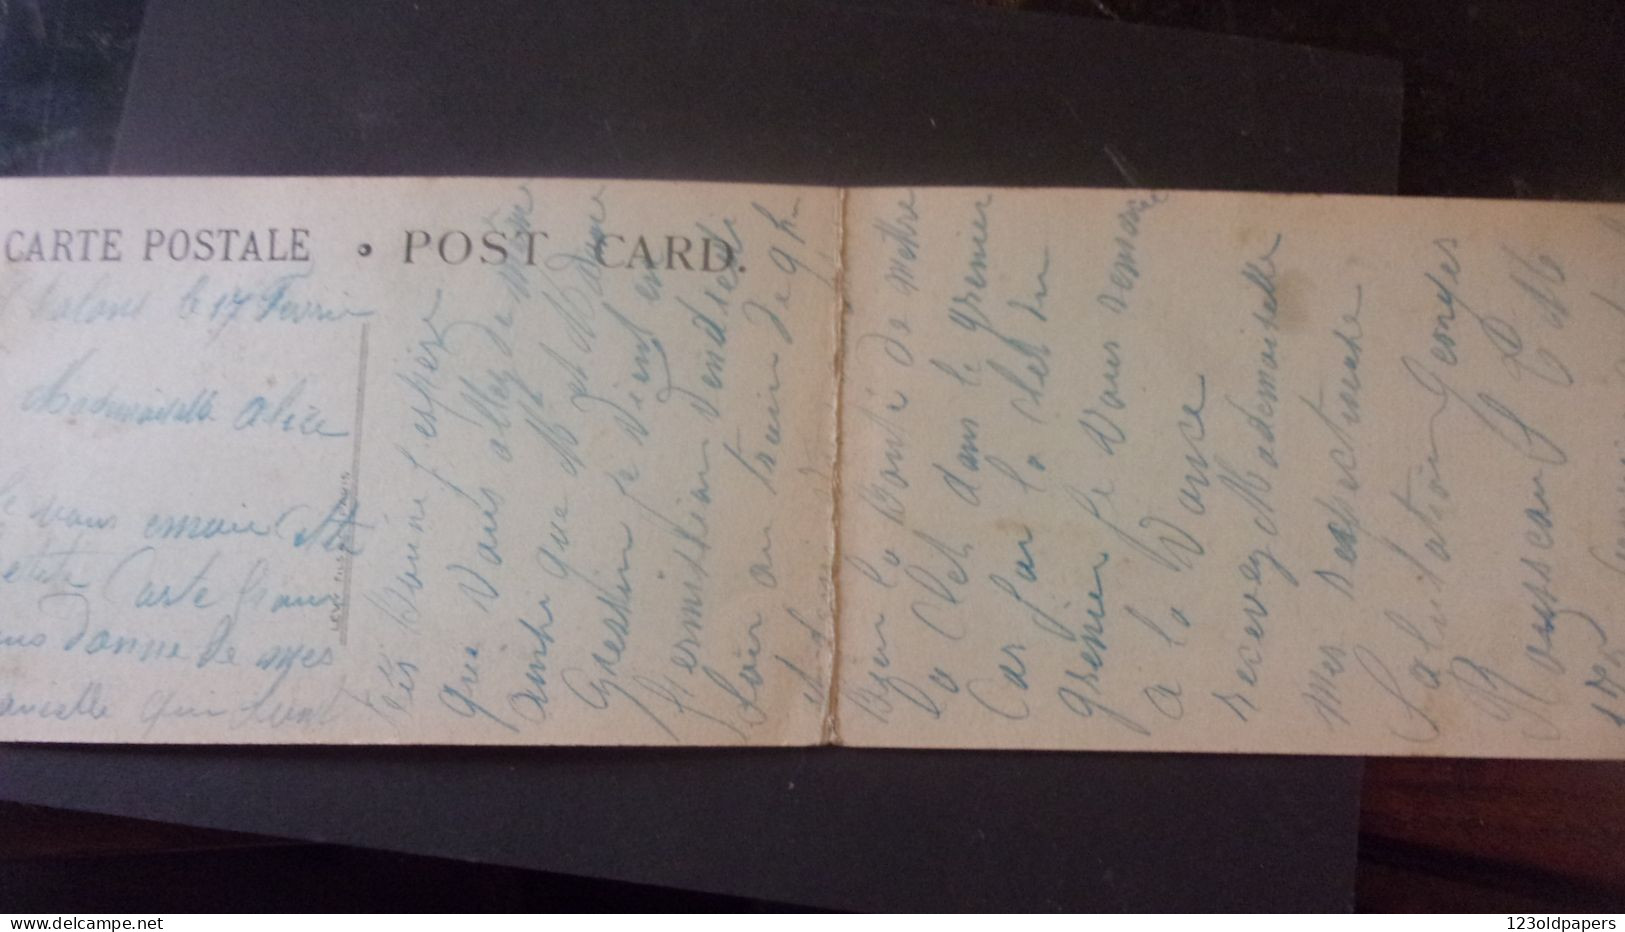 CARTE POSTALE • POST CARD.
Chalons le 17 Février
Mademoiselle Alice
Je vous envoie cette
petite Carte pour
vous donne de mes
nouvelle qui sont
très Bonne j'espère
que vous allez de même
ainsi que Mr et Madame
je vient en
permission vendredi
soir au train de 9h
Bien la Bonté de mettre
la Clef dans le grenier
Car par la clef du
grenier je vous remercie
a la avance
recevez Mademoiselle
mes respectueuse
Salutation Georges
123oldpapers